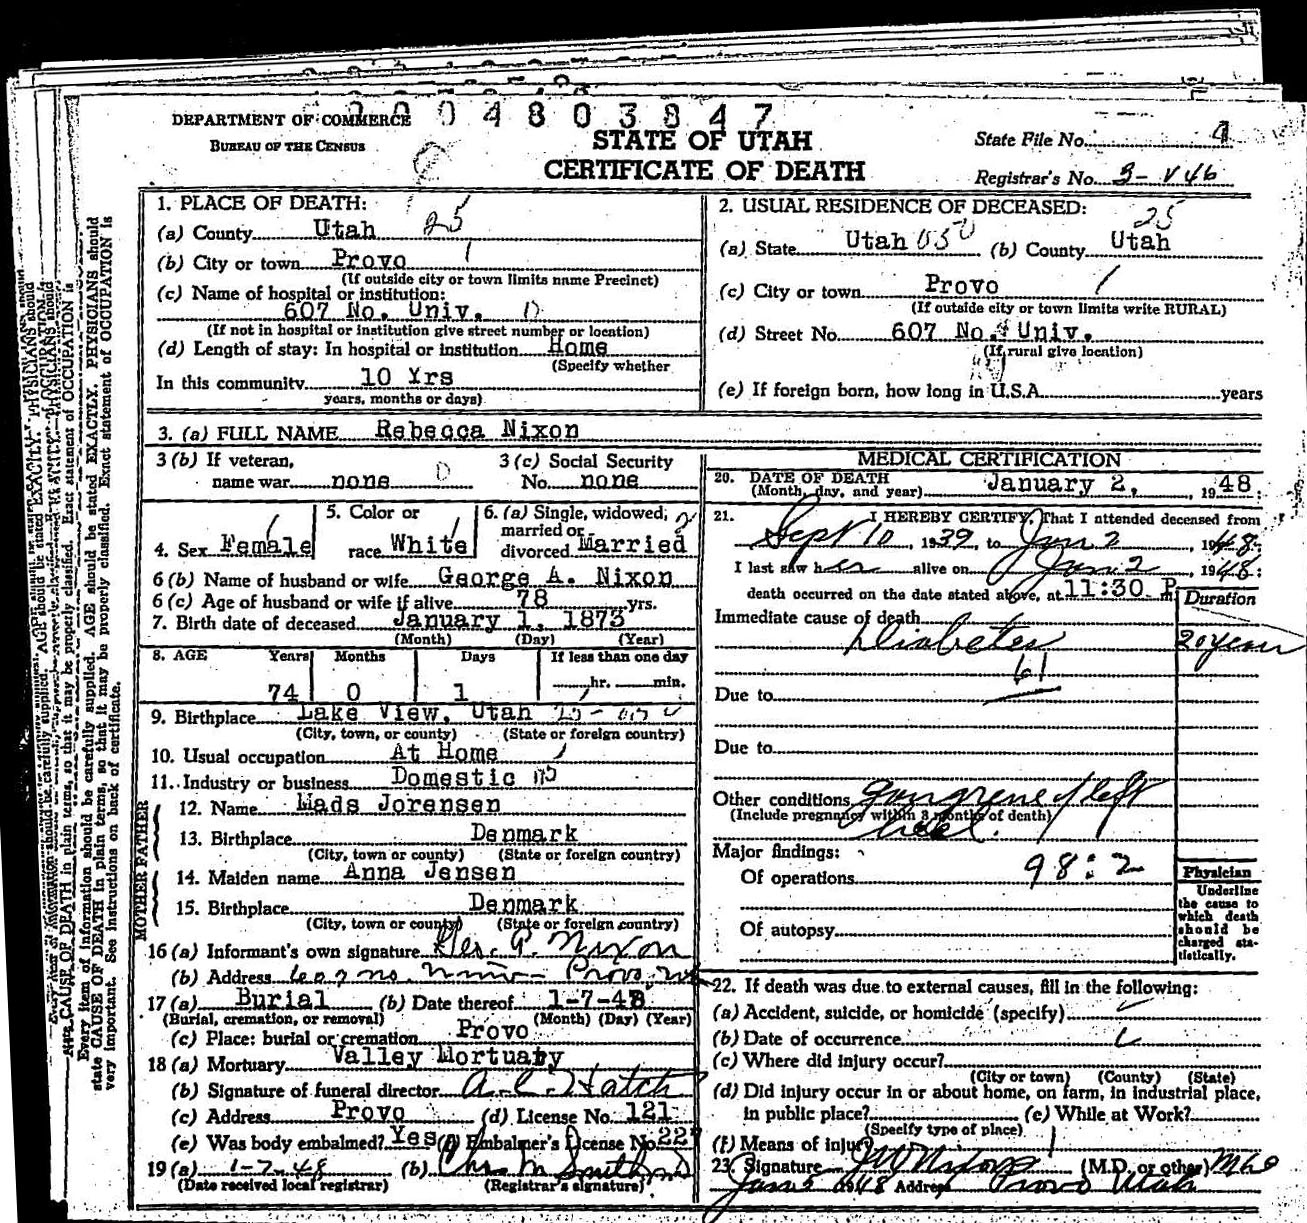 0 0 0 4 8 0 3 8 4 7
DEPARTMENT OF COMMERCE
BUREAU OF THE CENSUS
STATE OF UTAH
CERTIFICATE OF DEATH
State File No. 4
Registrar's No. 3-V46
1. PLACE OF DEATH:
(a) County Utah 25
(b) City or town Provo 1
(If outside city or town limits name Precinct)
(c) Name of hospital or institution:
607 No. Univ. 0
(If not in hospital or institution give street number or location)
(d) Length of stay: In hospital or institution Home
(Specify whether
In this community 10 Yrs
years, months or days)
2. USUAL RESIDENCE OF DECEASED:
25
(a) State Utah 050 (b) County Utah
(c) City or town Provo 1
(If outside city or town limits write RURAL)
(d) Street No. 607 No. Univ.
(If rural give location)
(e) If foreign born, how long in U.S.A. years
3. (a) FULL NAME Rebecca Nixon
3 (b) If veteran,
name war none 0
3 (c) Social Security
No. none
4. Sex Female
5. Color or
race White
6. (a) Single, widowed, 2
married or
divorced Married
6 (b) Name of husband or wife George A. Nixon
6 (c) Age of husband or wife if alive 78 yrs.
7. Birth date of deceased January 1, 1873
(Month) (Day) (Year)
8. AGE Years Months Days If less than one day
74 0 1 hr. min.
9. Birthplace Lake View, Utah
(City, town, or county) (State or foreign country)
10. Usual occupation At Home
11. Industry or business Domestic
FATHER
12. Name Mads Jorensen
13. Birthplace Denmark
(City, town or county) (State or foreign country)
MOTHER
14. Maiden name Anna Jensen
15. Birthplace Denmark
(City, town or county) (State or foreign country)
16 (a) Informant's own signature Geo. A. Nixon
(b) Address 607 no. Univ - Provo
17 (a) Burial (b) Date thereof 1-7-48
(Burial, cremation, or removal) (Month) (Day) (Year)
(c) Place: burial or cremation Provo
18 (a) Mortuary Valley Mortuary
(b) Signature of funeral director A. C. Hatch
(c) Address Provo (d) License No. 121
(e) Was body embalmed? Yes (f) Embalmer's License No. 227
19 (a) 1-7-48 (b) Chas M Smith MD
(Date received local registrar) (Registrar's signature)
MEDICAL CERTIFICATION
20. DATE OF DEATH
(Month, day, and year) January 2, , 1948
21. I HEREBY CERTIFY, That I attended deceased from
Sept 10, 1939, to Jan 2, 1948
I last saw her alive on Jan 2, 1948
death occurred on the date stated above, at 11:30 P.
Duration
Immediate cause of death
Diabetes 20 years
61
Due to
Due to
Other conditions Gangrene of left
(Include pregnancy within 3 months of death)
heel.
Major findings:
Of operations 98:2
Of autopsy
Physician
Underline
the cause to
which death
should be
charged sta-
tistically.
22. If death was due to external causes, fill in the following:
(a) Accident, suicide, or homicide (specify)
(b) Date of occurrence
(c) Where did injury occur?
(City or town) (County) (State)
(d) Did injury occur in or about home, on farm, in industrial place,
in public place? (e) While at Work?
(Specify type of place)
(f) Means of injury
23. Signature J W Nixon (M.D. or other) M.D.
Jan 5 1948 Address Provo Utah
Every item of information should be carefully supplied. AGE should be stated EXACTLY. PHYSICIANS should
state CAUSE OF DEATH in plain terms, so that it may be properly classified. Exact statement of OCCUPATION is
very important. See instructions on back of certificate.